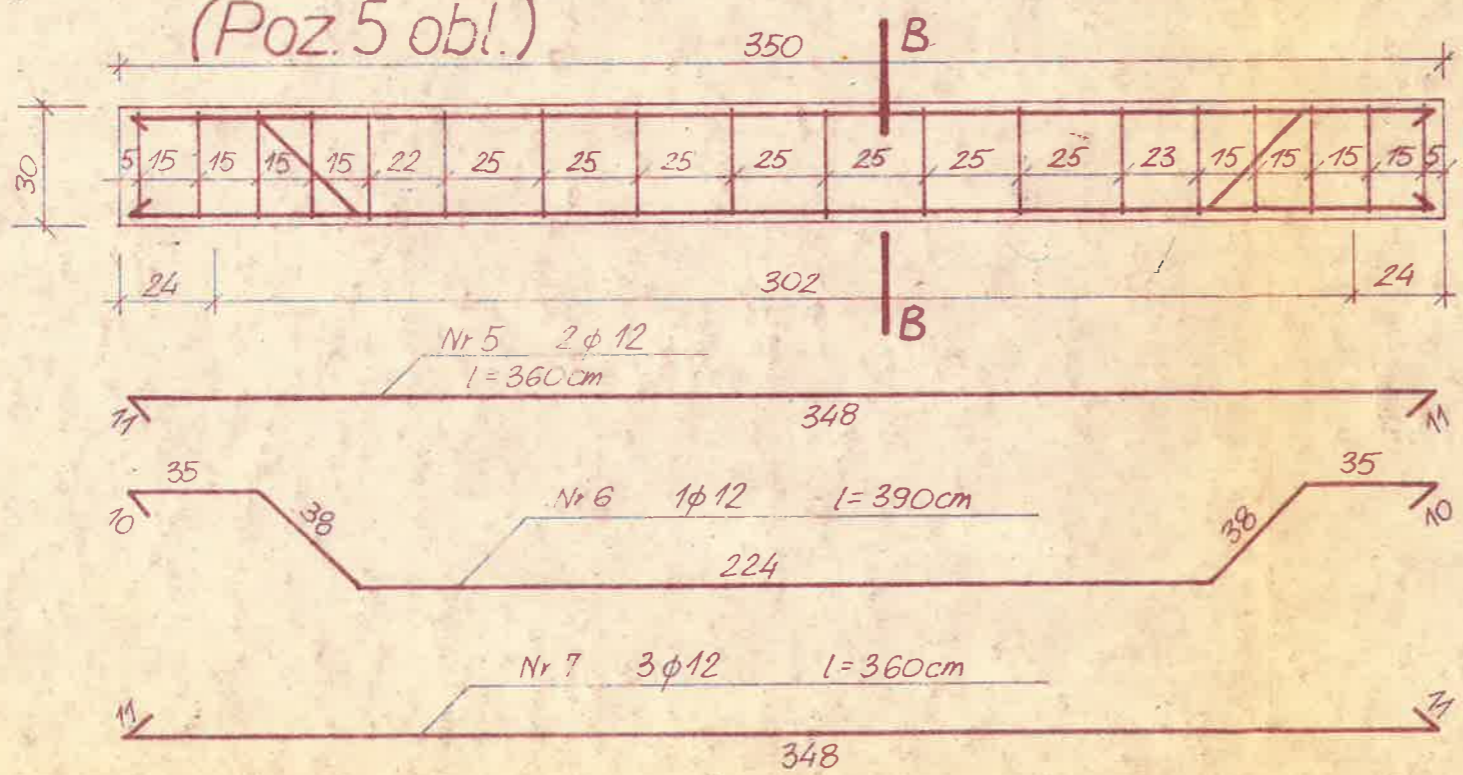 (Poz. 5 obl.)
350
B
30
5 15 15 15 15 22 25 25 25 25 25 25 25 23 15 15 15 15 5
24 302 24
B
Nr 5 2ϕ12
l=360cm
11 348 11
35 35
10 38 Nr 6 1ϕ12 l=390cm 38 10
224
Nr 7 3ϕ12 l=360cm
11 11
348